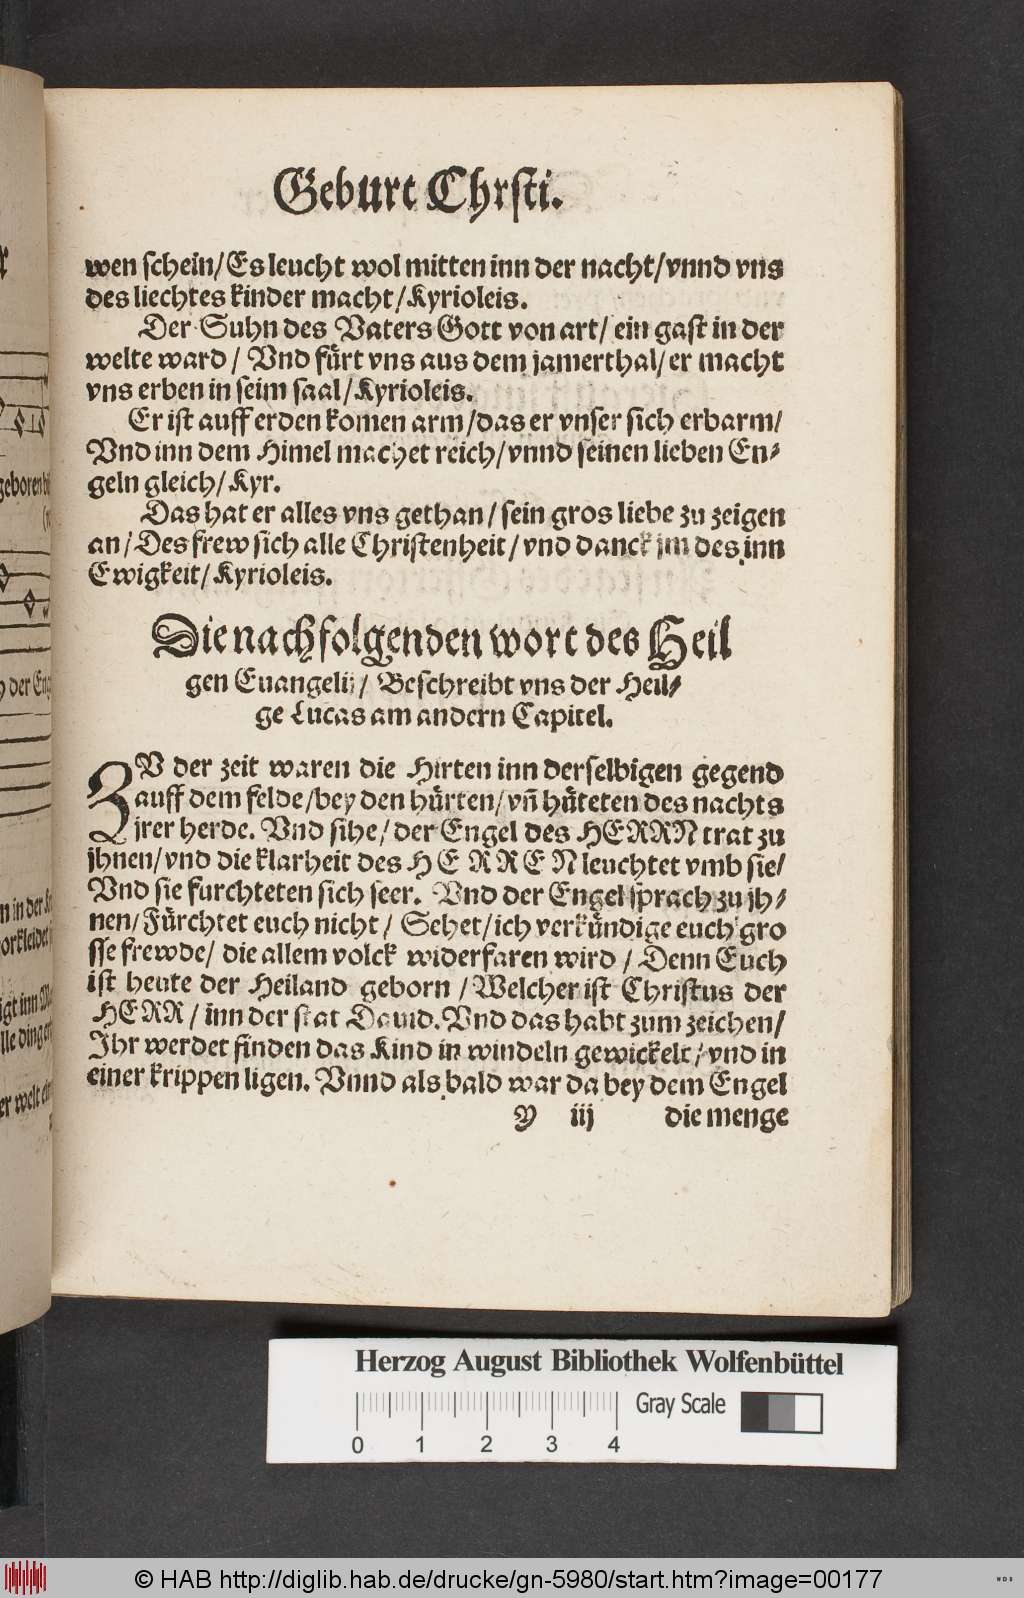 Geburt Chrsti.
wen schein/Es leucht wol mitten inn der nacht/vnnd vns
des liechtes kinder macht/Kyrioleis.
Der Suhn des Vaters Gott von art/ein gast in der
welte ward/Vnd fürt vns aus dem jamerthal/er macht
vns erben in seim saal/Kyrioleis.
Er ist auff erden komen arm/das er vnser sich erbarm/
Vnd inn dem Himel machet reich/vnnd seinen lieben En-
geln gleich/Kyr.
Das hat er alles vns gethan/sein gros liebe zu zeigen
an/Des frew sich alle Christenheit/vnd danck jm des inn
Ewigkeit/Kyrioleis.
Die nachfolgenden wort des Heil
gen Euangelij/Beschreibt vns der Heil-
ge Lucas am andern Capitel.
ZV der zeit waren die Hirten inn derselbigen gegend
auff dem felde/bey den hürten/vn̄ hüteten des nachts
jrer herde. Vnd sihe/der Engel des HERRN trat zu
jhnen/vnd die klarheit des HERREN leuchtet vmb sie/
Vnd sie furchteten sich seer. Vnd der Engel sprach zu jh-
nen/Fürchtet euch nicht/Sehet/ich verkündige euch gro
sse frewde/die allem volck widerfaren wird/Denn Euch
ist heute der Heiland geborn/Welcher ist Christus der
HERR/inn der stat Dauid. Vnd das habt zum zeichen/
Ihr werdet finden das Kind in windeln gewickelt/vnd in
einer krippen ligen. Vnnd als bald war da bey dem Engel
Y iij die menge
geboren
der Eng
n in der
vorkleidet
igt inn
lle ding
er welt
Herzog August Bibliothek Wolfenbüttel
Gray Scale
0 1 2 3 4
© HAB http://diglib.hab.de/drucke/gn-5980/start.htm?image=00177